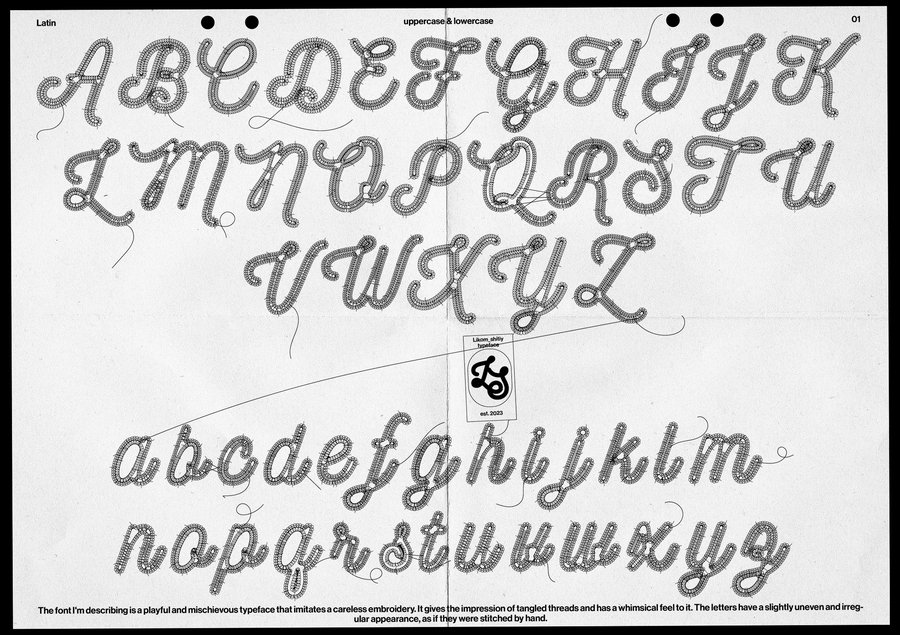 Latin uppercase & lowercase 01
A B C D E F G H I J K
L M N O P Q R S T U
V W X Y Z
Likom_shitiy
typeface
est. 2023
a b c d e f g h i j k l m
n o p q r s t u v w x y z
The font I'm describing is a playful and mischievous typeface that imitates a careless embroidery. It gives the impression of tangled threads and has a whimsical feel to it. The letters have a slightly uneven and irreg-
ular appearance, as if they were stitched by hand.